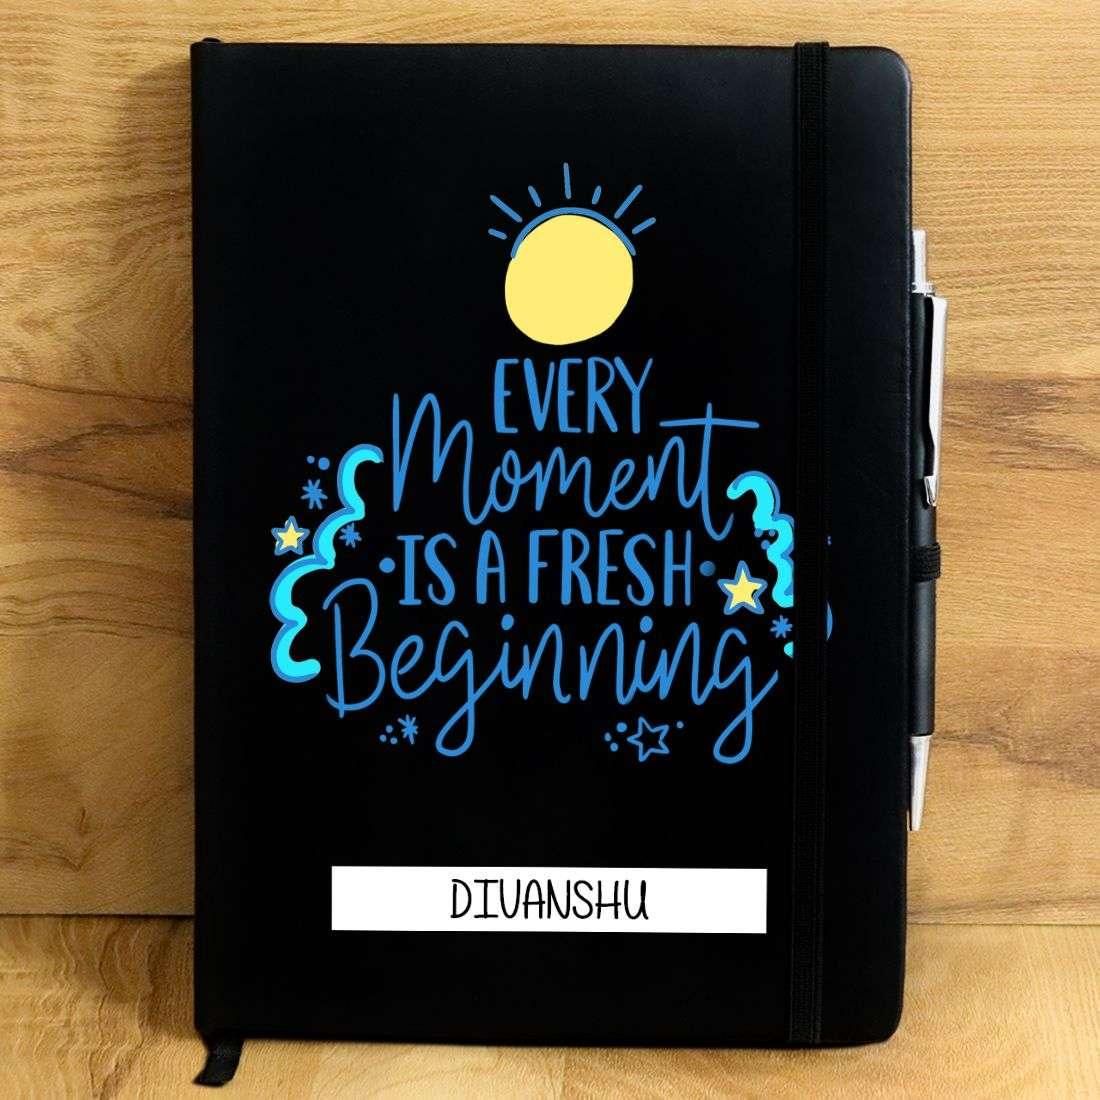 EVERY
Moment
• IS A FRESH •
Beginning
DIVANSHU